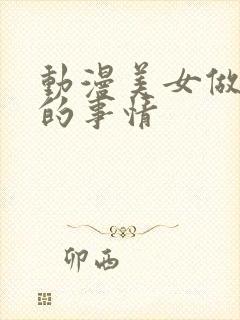 動漫美女做
的事情
卯西